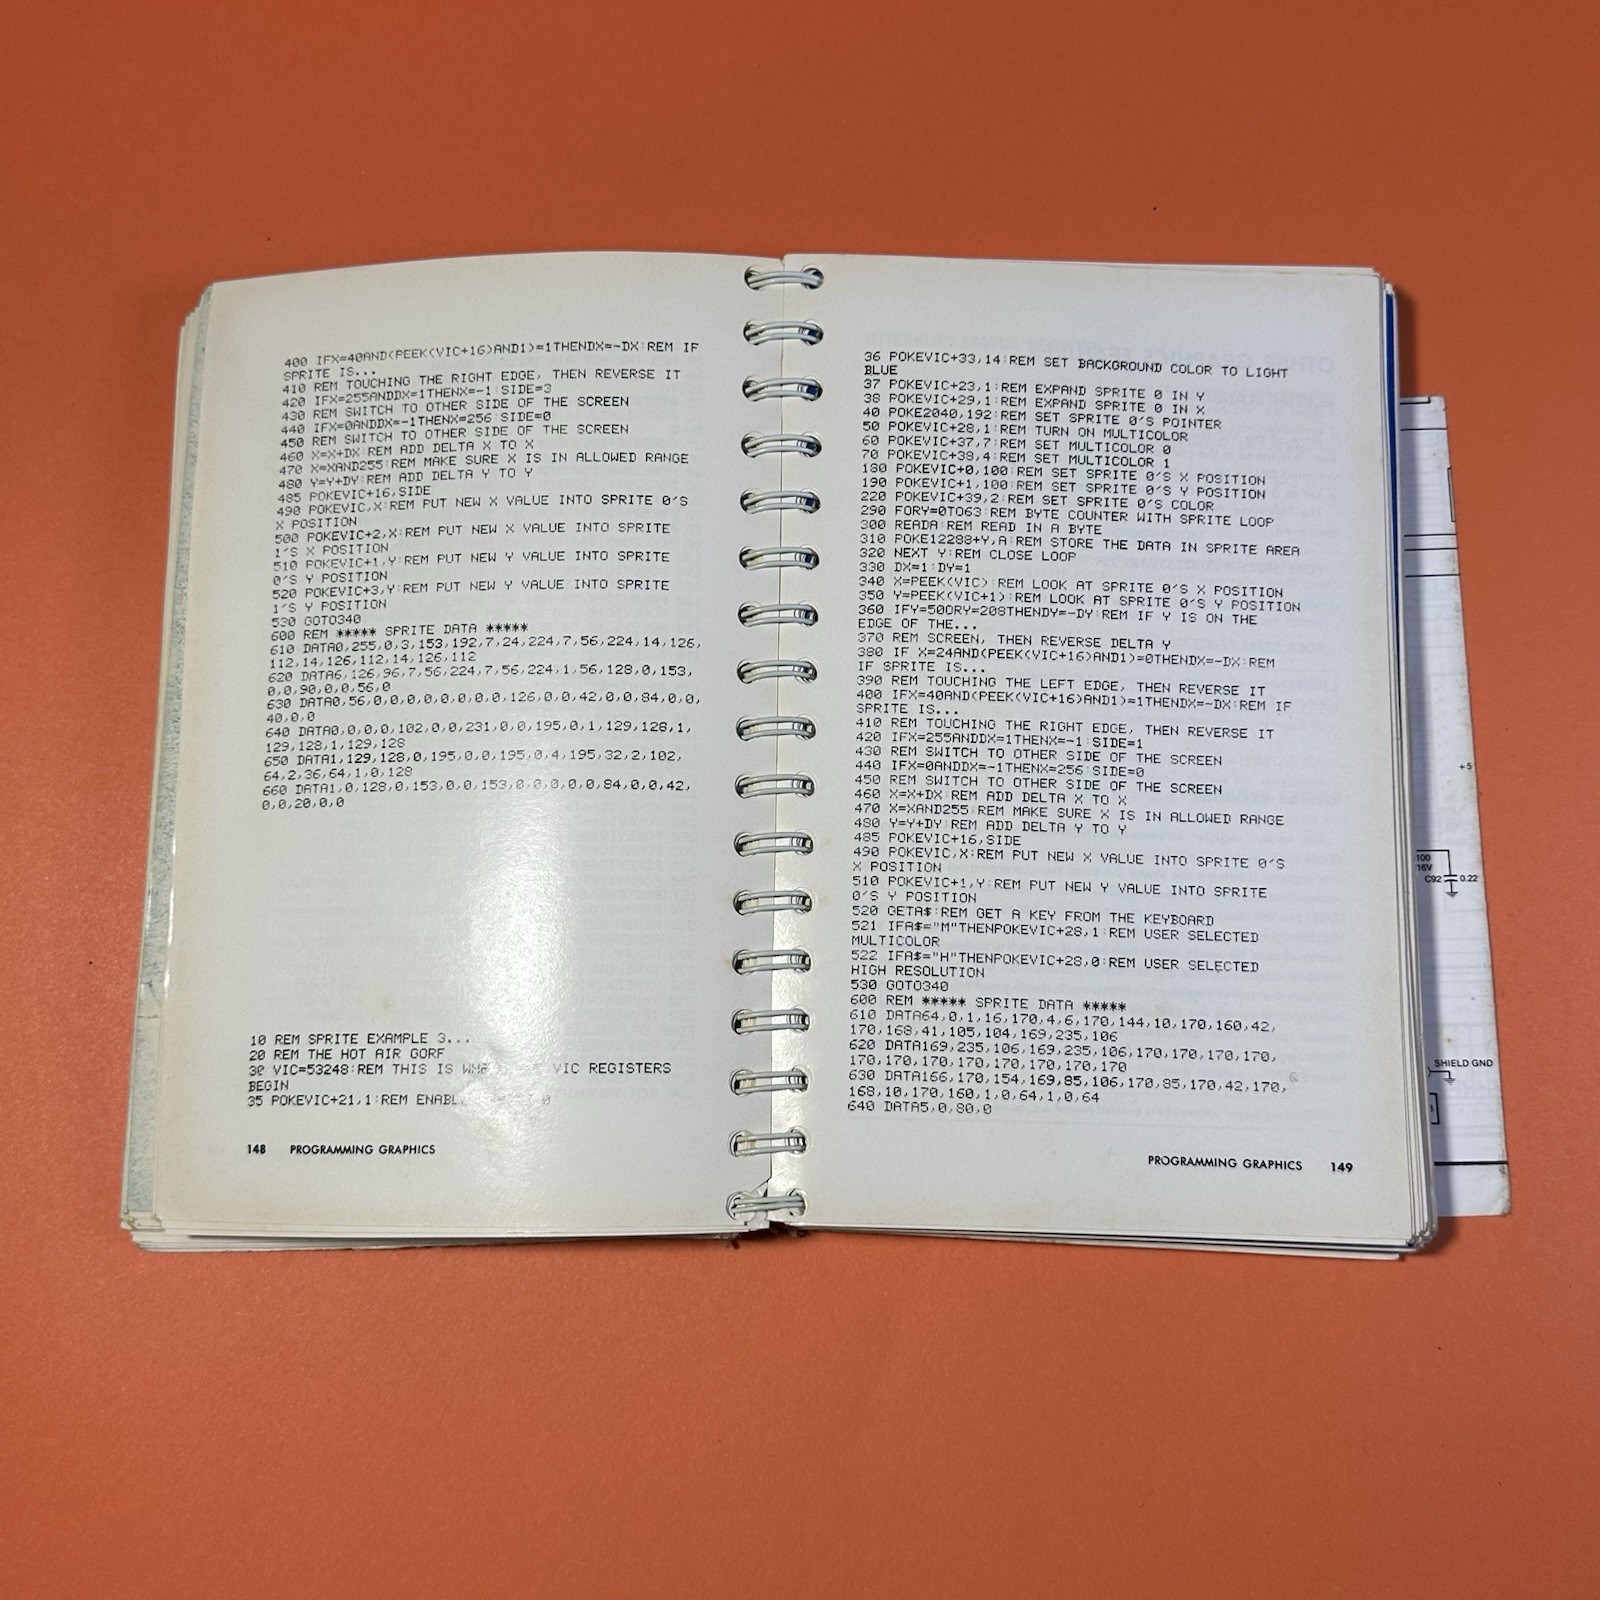 400 IFX=40AND(PEEK(VIC+16)AND1)=1THENDX=-DX:REM IF
SPRITE IS...
410 REM TOUCHING THE RIGHT EDGE, THEN REVERSE IT
420 IFX=255ANDDX=1THENX=-1:SIDE=3
430 REM SWITCH TO OTHER SIDE OF THE SCREEN
440 IFX=0ANDDX=-1THENX=256:SIDE=0
450 REM SWITCH TO OTHER SIDE OF THE SCREEN
460 X=X+DX:REM ADD DELTA X TO X
470 X=XAND255:REM MAKE SURE X IS IN ALLOWED RANGE
480 Y=Y+DY:REM ADD DELTA Y TO Y
485 POKEVIC+16,SIDE
490 POKEVIC,X:REM PUT NEW X VALUE INTO SPRITE 0'S
X POSITION
500 POKEVIC+2,X:REM PUT NEW X VALUE INTO SPRITE
1'S X POSITION
510 POKEVIC+1,Y:REM PUT NEW Y VALUE INTO SPRITE
0'S Y POSITION
520 POKEVIC+3,Y:REM PUT NEW Y VALUE INTO SPRITE
1'S Y POSITION
530 GOTO340
600 REM ***** SPRITE DATA *****
610 DATA0,255,0,3,153,192,7,24,224,7,56,224,14,126,
112,14,126,112,14,126,112
620 DATA6,126,96,7,56,224,7,56,224,1,56,128,0,153,
0,0,90,0,0,56,0
630 DATA0,56,0,0,0,0,0,0,0,0,126,0,0,42,0,0,84,0,0,
40,0,0
640 DATA0,0,0,0,102,0,0,231,0,0,195,0,1,129,128,1,
129,128,1,129,128
650 DATA1,129,128,0,195,0,0,195,0,4,195,32,2,102,
64,2,36,64,1,0,128
660 DATA1,0,128,0,153,0,0,153,0,0,0,0,0,84,0,0,42,
0,0,20,0,0
10 REM SPRITE EXAMPLE 3...
20 REM THE HOT AIR GORF
30 VIC=53248:REM THIS IS VIC REGISTERS
BEGIN
35 POKEVIC+21,1:REM
148 PROGRAMMING GRAPHICS
36 POKEVIC+33,14:REM SET BACKGROUND COLOR TO LIGHT
BLUE
37 POKEVIC+23,1:REM EXPAND SPRITE 0 IN Y
38 POKEVIC+29,1:REM EXPAND SPRITE 0 IN X
40 POKE2040,192:REM SET SPRITE 0'S POINTER
50 POKEVIC+28,1:REM TURN ON MULTICOLOR
60 POKEVIC+37,7:REM SET MULTICOLOR 0
70 POKEVIC+38,4:REM SET MULTICOLOR 1
180 POKEVIC+0,100:REM SET SPRITE 0'S X POSITION
190 POKEVIC+1,100:REM SET SPRITE 0'S Y POSITION
220 POKEVIC+39,2:REM SET SPRITE 0'S COLOR
290 FORY=0TO63:REM BYTE COUNTER WITH SPRITE LOOP
300 READA:REM READ IN A BYTE
310 POKE12288+Y,A:REM STORE THE DATA IN SPRITE AREA
320 NEXT Y:REM CLOSE LOOP
330 DX=1:DY=1
340 X=PEEK(VIC):REM LOOK AT SPRITE 0'S X POSITION
350 Y=PEEK(VIC+1):REM LOOK AT SPRITE 0'S Y POSITION
360 IFY=50ORY=208THENDY=-DY:REM IF Y IS ON THE
EDGE OF THE...
370 REM SCREEN, THEN REVERSE DELTA Y
380 IF X=24AND(PEEK(VIC+16)AND1)=0THENDX=-DX:REM
IF SPRITE IS...
390 REM TOUCHING THE LEFT EDGE, THEN REVERSE IT
400 IFX=40AND(PEEK(VIC+16)AND1)=1THENDX=-DX:REM IF
SPRITE IS...
410 REM TOUCHING THE RIGHT EDGE, THEN REVERSE IT
420 IFX=255ANDDX=1THENX=-1:SIDE=1
430 REM SWITCH TO OTHER SIDE OF THE SCREEN
440 IFX=0ANDDX=-1THENX=256:SIDE=0
450 REM SWITCH TO OTHER SIDE OF THE SCREEN
460 X=X+DX:REM ADD DELTA X TO X
470 X=XAND255:REM MAKE SURE X IS IN ALLOWED RANGE
480 Y=Y+DY:REM ADD DELTA Y TO Y
485 POKEVIC+16,SIDE
490 POKEVIC,X:REM PUT NEW X VALUE INTO SPRITE 0'S
X POSITION
510 POKEVIC+1,Y:REM PUT NEW Y VALUE INTO SPRITE
0'S Y POSITION
520 GETA$:REM GET A KEY FROM THE KEYBOARD
521 IFA$="M"THENPOKEVIC+28,1:REM USER SELECTED
MULTICOLOR
522 IFA$="H"THENPOKEVIC+28,0:REM USER SELECTED
HIGH RESOLUTION
530 GOTO340
600 REM ***** SPRITE DATA *****
610 DATA64,0,1,16,170,4,6,170,144,10,170,160,42,
170,168,41,105,104,169,235,106
620 DATA169,235,106,169,235,106,170,170,170,170,
170,170,170,170,170,170,170,170
630 DATA166,170,154,169,85,106,170,85,170,42,170,
168,10,170,160,1,0,64,1,0,64
640 DATA5,0,80,0
PROGRAMMING GRAPHICS 149
+5
100
16V
C92 0.22
SHIELD GND